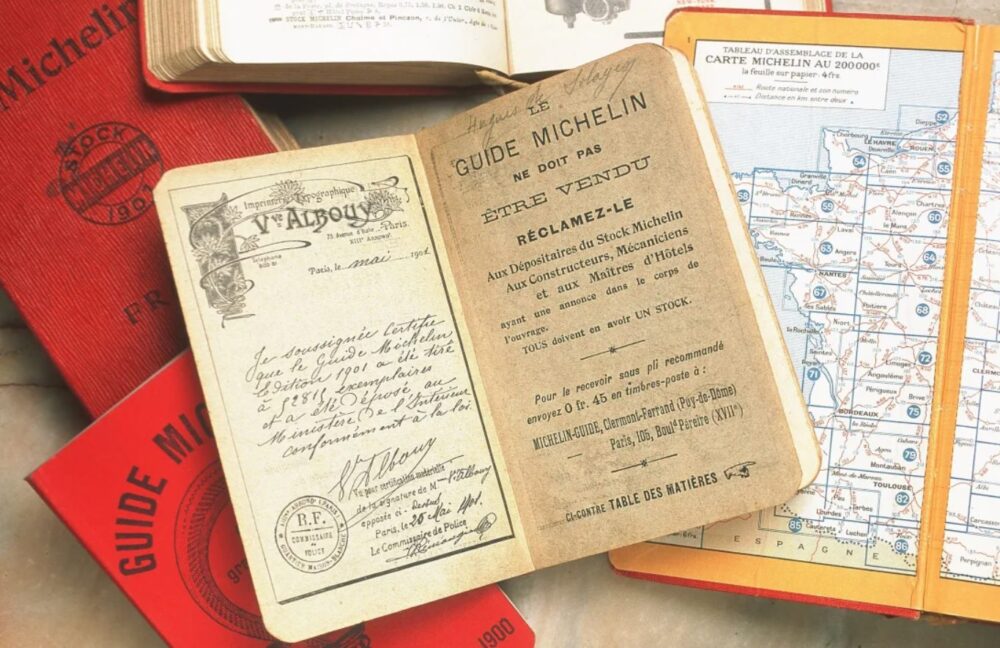 Michelin
STOCK
MICHELIN
1901
FR
STOCK MICHELIN Chalme et Pinczon,
GUIDE MIC
1900
Imprimerie Typographique
Vve ALBOUY
75 Avenue d'Italie Paris.
XIIIe Arrondt
Téléphone
Paris, le mai 1901
Je soussignée Certifie
que le Guide Michelin
Edition 1901 a été tiré
à 52815 exemplaires
et a été déposé au
Ministère De l'Intérieur
conformément à la loi.
Vve Albouy
Vu pour certification matérielle
de la signature de Mme Vve Albouy
apposée ci-dessus
Paris, le 25 Mai 1901.
Le Commissaire de Police
R.F.
COMMISSAIRE
DE
POLICE
QUARTIER MAISON-BLANCHE
Hugues de
LE
GUIDE MICHELIN
NE DOIT PAS
ÊTRE VENDU
RÉCLAMEZ-LE
Aux Dépositaires du Stock Michelin
Aux Constructeurs, Mécaniciens
et aux Maîtres d'Hôtels
ayant une annonce dans le corps de
l'ouvrage.
TOUS doivent en avoir UN STOCK.
Pour le recevoir sous pli recommandé
envoyez 0 fr. 45 en timbres-poste à :
MICHELIN-GUIDE, Clermont-Ferrand (Puy-de-Dôme)
Paris, 105, Bould Péreire (XVIIe)
CI-CONTRE TABLE DES MATIÈRES
TABLEAU D'ASSEMBLAGE DE LA
CARTE MICHELIN AU 200000e
la feuille sur papier 4frs.
Route nationale et son numéro
Distance en km entre deux
Dieppe 52
Cherbourg
LE HAVRE
ROUEN
54
55
58
59
60
Granville
Dinard
Chartres
Alençon
le Mans
Rennes
Laval
63
64
Angers
NANTES
67
68
Châtellerault
Poitiers
Niort
la Rochelle
71
72
Saintes
Royan
Angoulême
Périgueux
Brive
BORDEAUX
75
Agen
79
Montauban
Mont-de-Marsan
TOULOUSE
82
Pau
Tarbes
Lourdes
85
86
ESPAGNE
Carcassonne
Perpignan